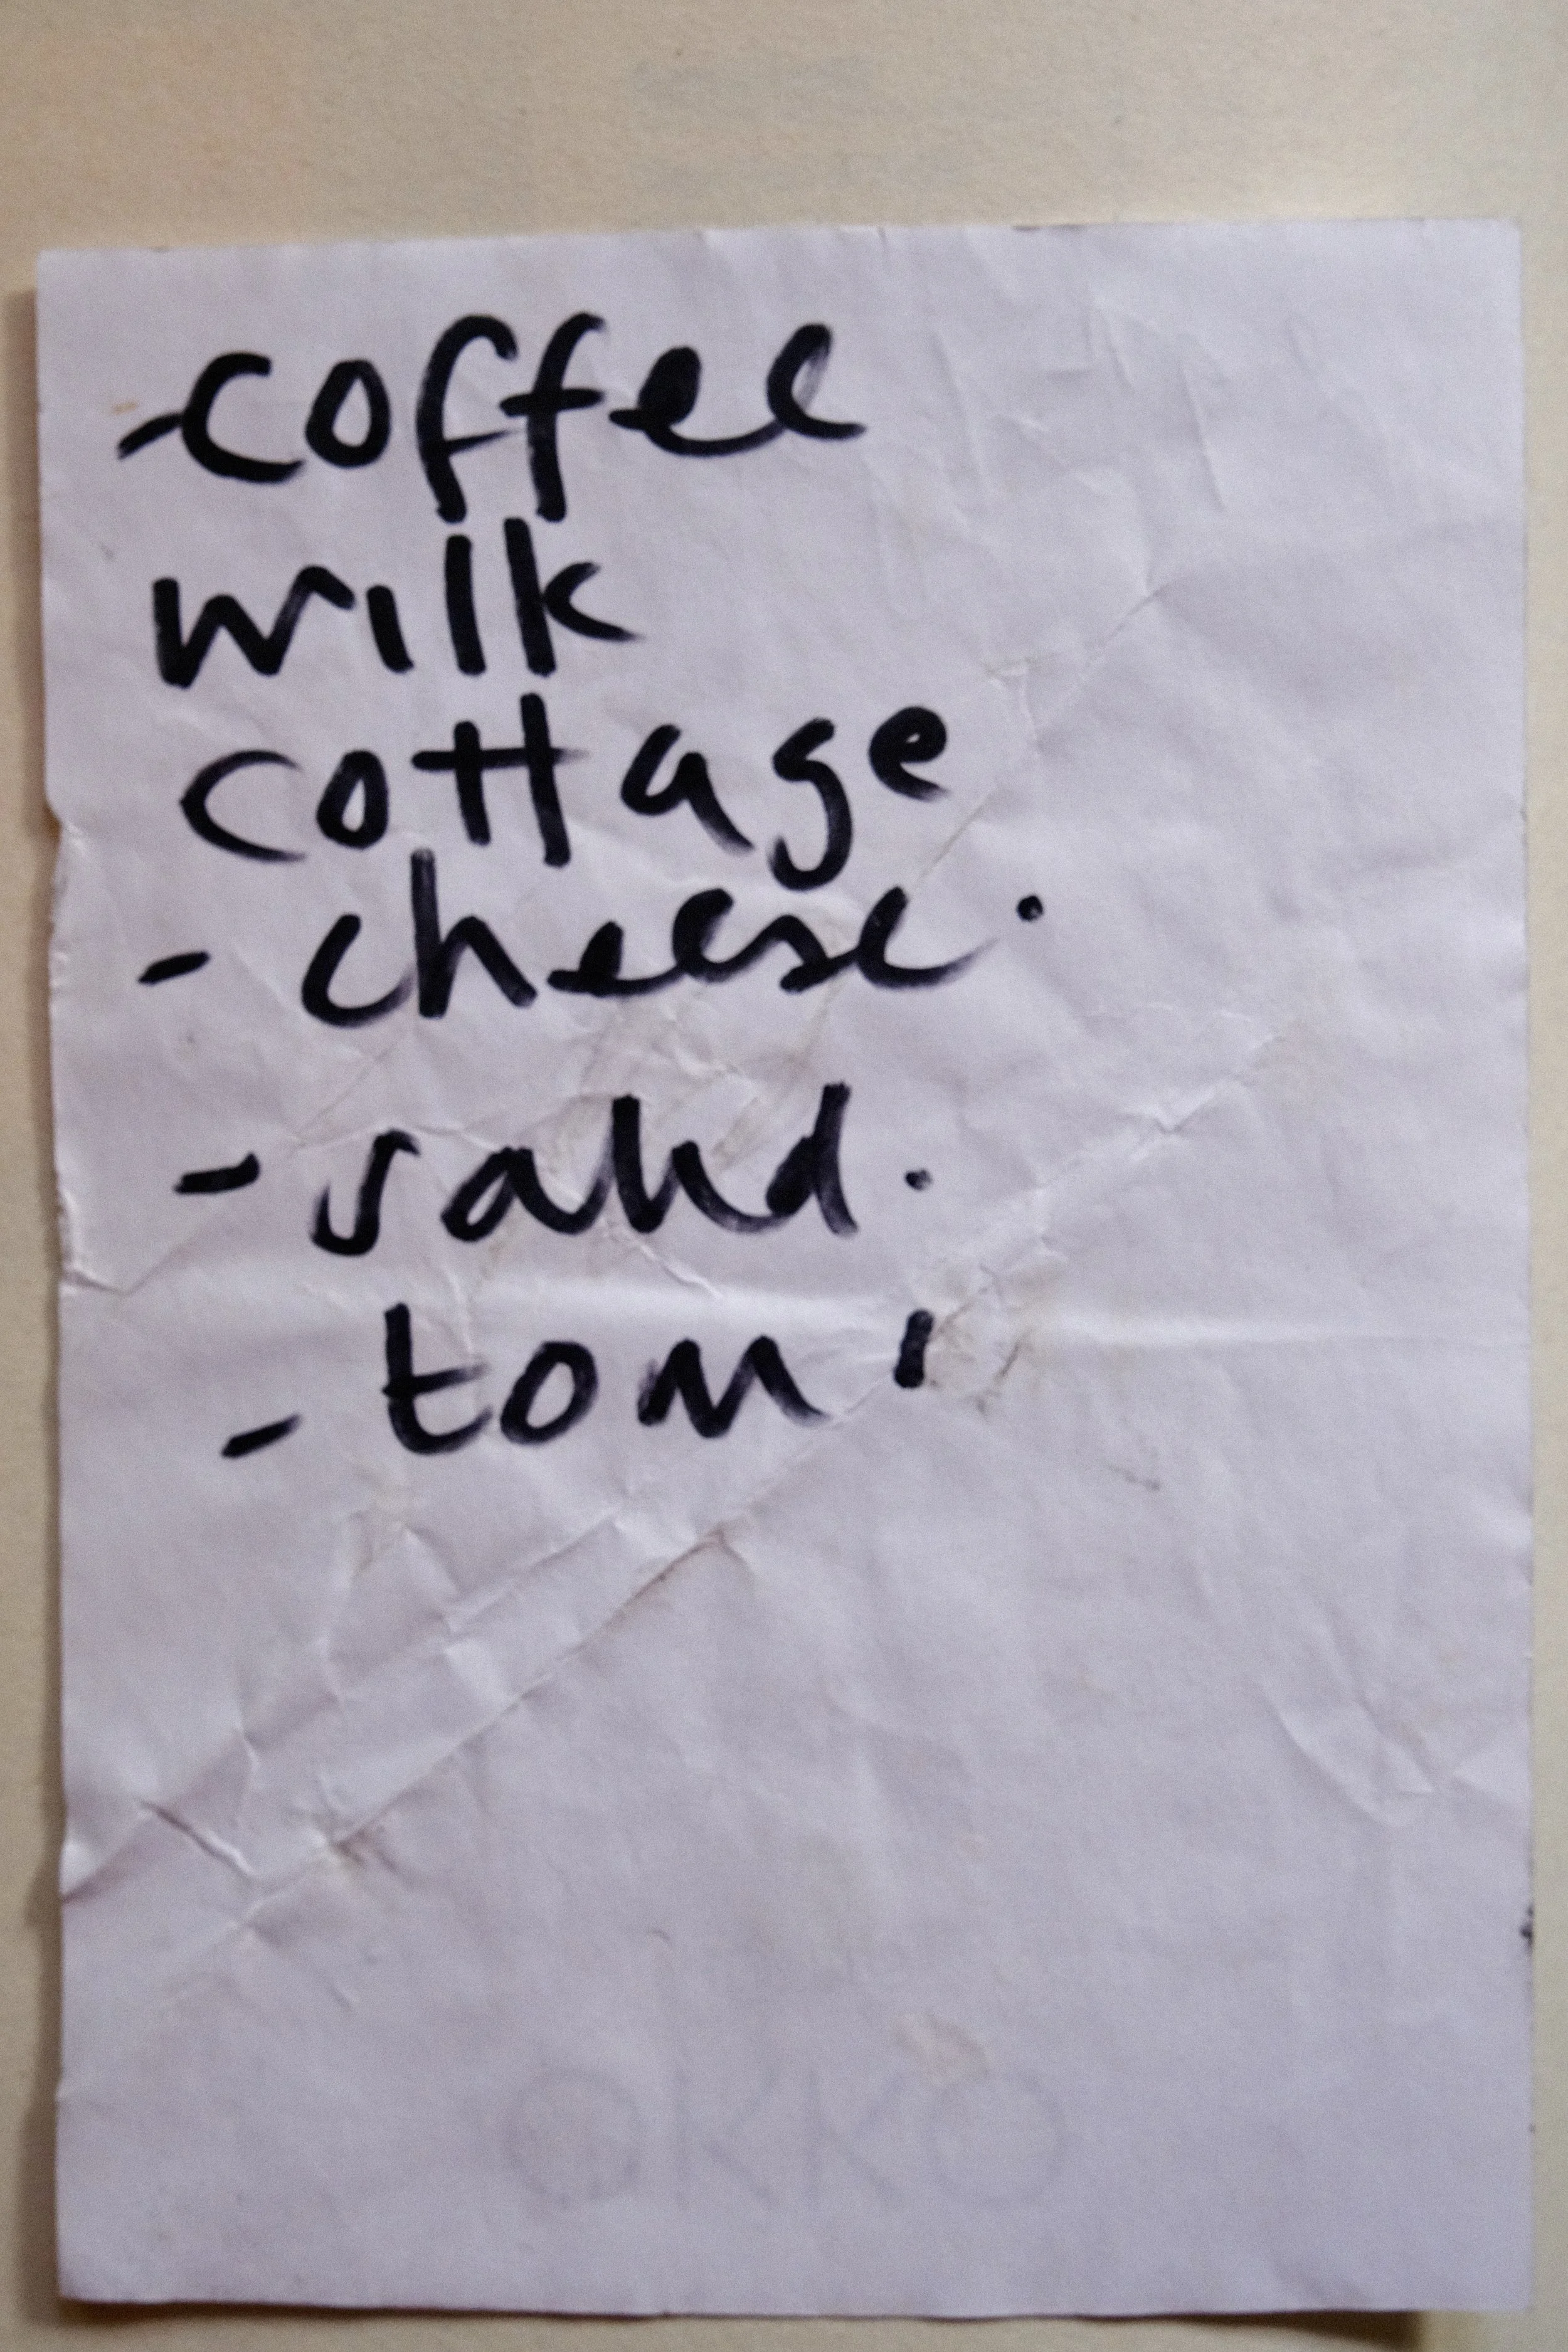 - coffee
milk
cottage
- cheese.
- salad.
- tom'
OKKO